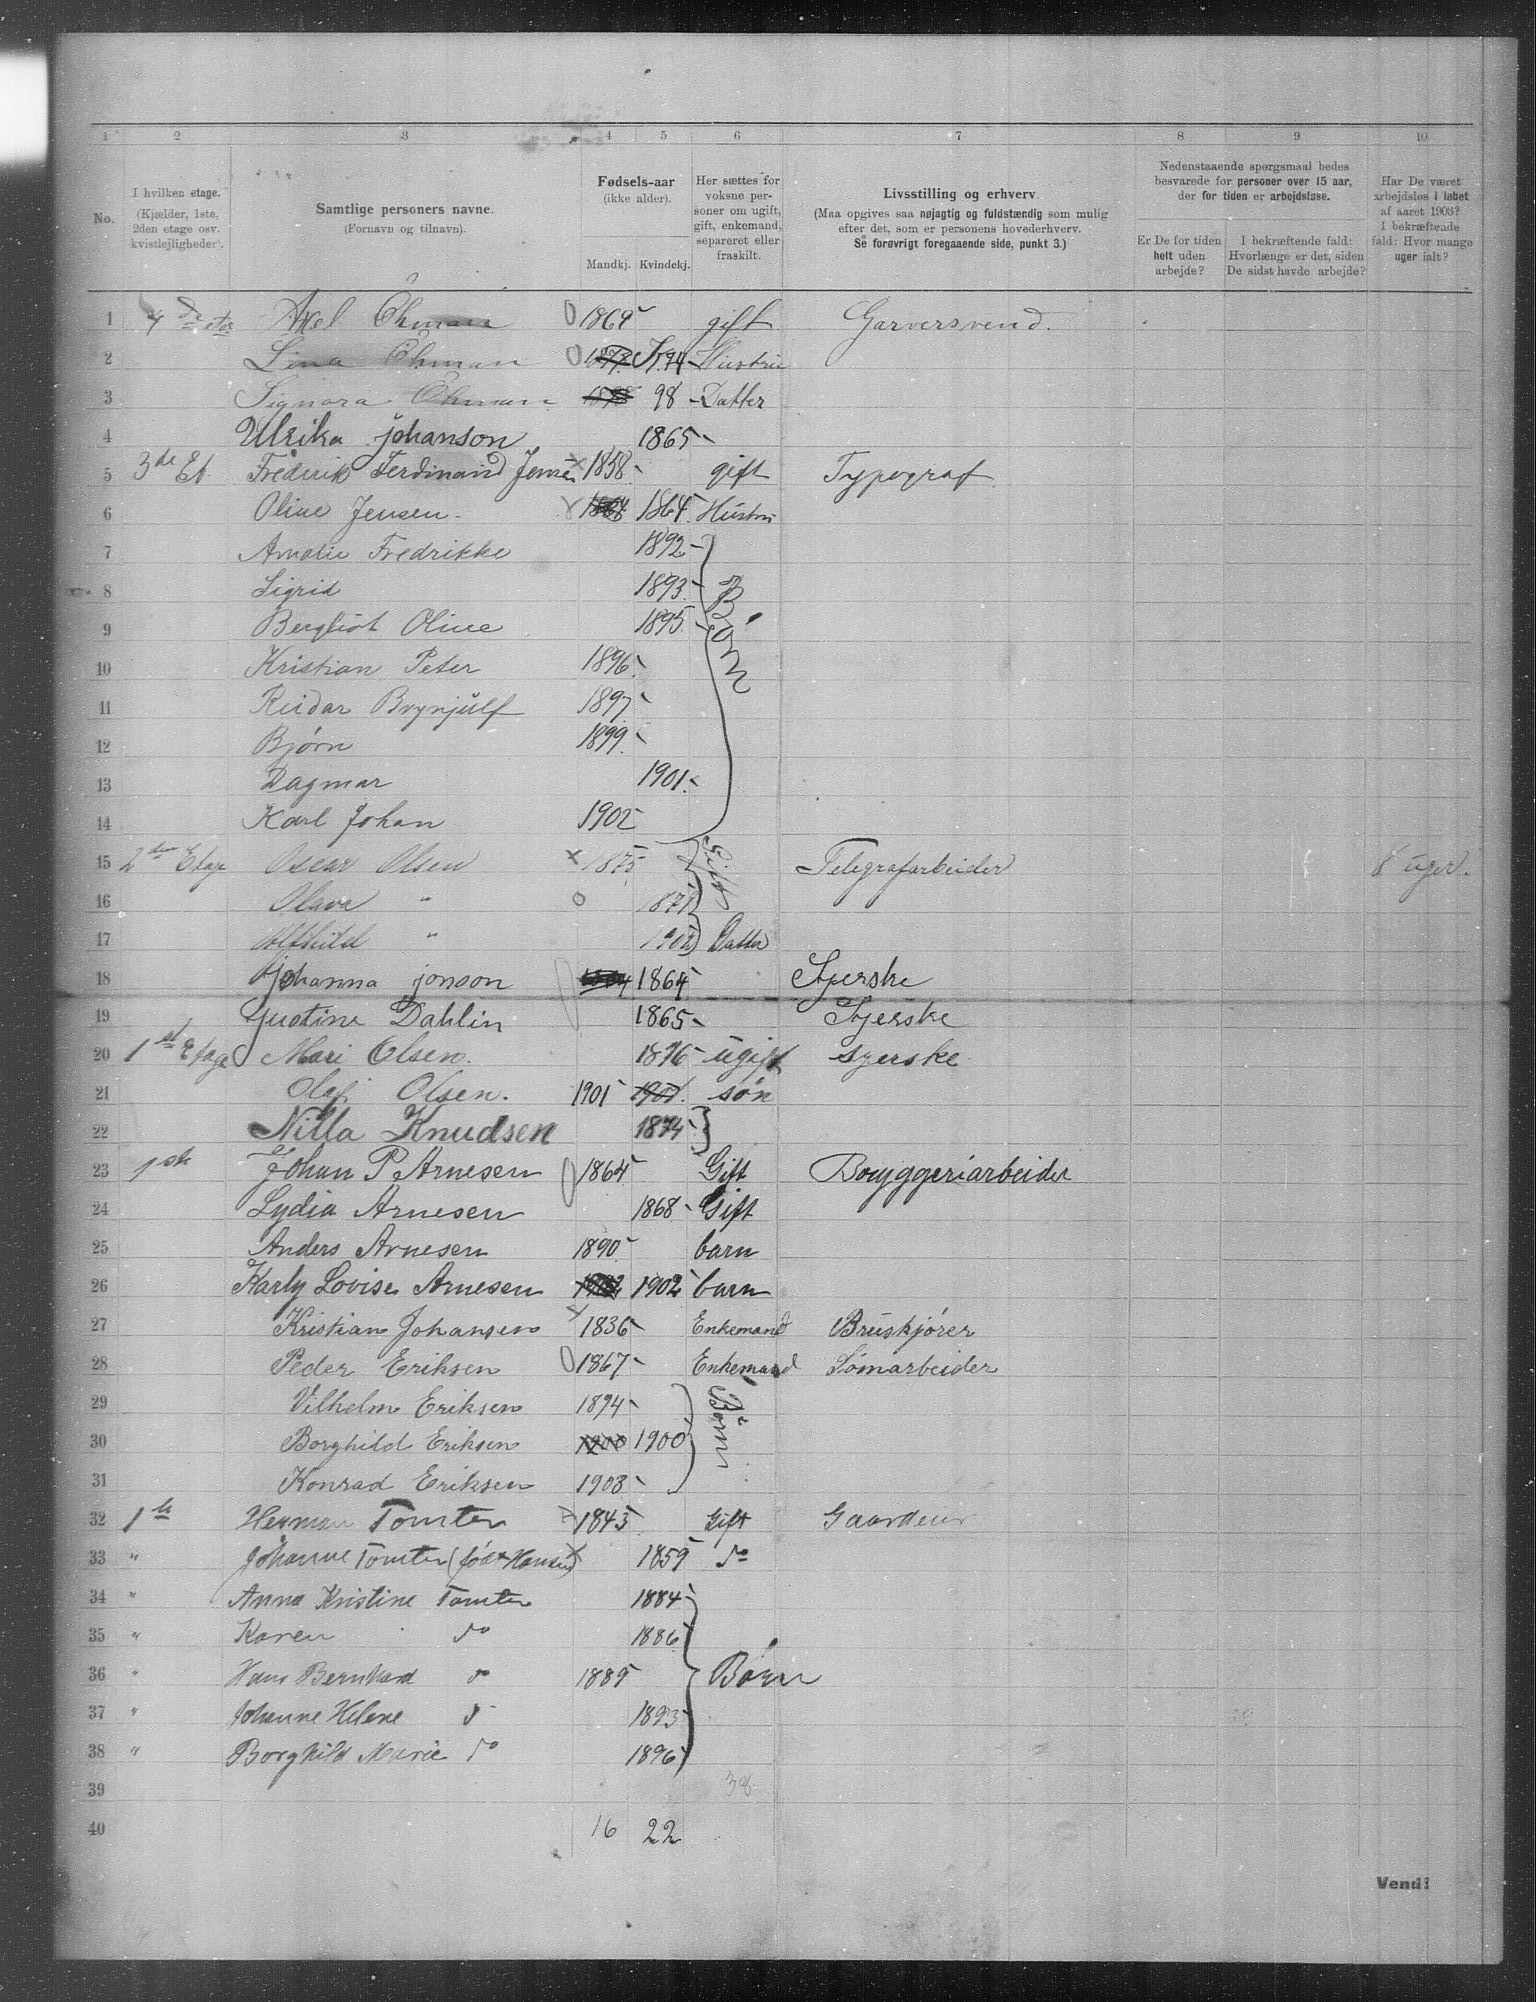 1 2 3 4 5 6 7 8 9 10
No.
I hvilken etage. (Kjælder, 1ste, 2den etage osv. kvistleiligheder).
Samtlige personers navne. (Fornavn og tilnavn).
Fødsels-aar (ikke alder). Mandkj. Kvindekj.
Her sættes for voksne personer om ugift, gift, enkemand, separeret eller fraskilt.
Livsstilling og erhverv. (Maa opgives saa nøjagtig og fuldstændig som mulig efter det, som er personens hovederhverv. Se forøvrigt foregaaende side, punkt 3.)
Nedenstaaende spørgsmaal bedes besvarede for personer over 15 aar, der for tiden er arbejdsløse.
Er De for tiden helt uden arbejde?
I bekræftende fald: Hvorlænge er det, siden De sidst havde arbejde?
Har De været arbejdsløs i løbet af aaret 1903? I bekræftende fald: Hvor mange uger ialt?
1 4de Axel Öhman 0 1864 gift Garversvend.
2 Lina Öhman 0 74 Hustru
3 Signora Öhman 98 Datter
4 Ulrika Johanson 1865
5 3de Et Frederik Ferdinand Jensen x 1858 gift Typograf
6 Oline Jensen x 1864 1864 Hustru
7 Amalie Fredrikke 1892
8 Sigrid 1893 Börn
9 Bergliot Oline 1895
10 Kristian Peter 1896
11 Reidar Brynjulf 1897
12 Bjørn 1899
13 Dagmar 1901
14 Karl Johan 1902
15 2den Etage Oscar Olsen x 1875 Gift Telegrafarbeider 8 uger.
16 Olava " 0 1871
17 Alfhild " 1902 Datter
18 Johanna jonson 1864 Syerske
19 Justine Dahlin 1865 Syerske
20 1st Etage Mari Olsen. 1876 ugift syerske
21 Olaf Olsen. 1901 1901 søn
22 Nilla Knudsen 1874
23 1ste Johan P Arnesen 0 1864 Gift Bryggeriarbeider
24 Lydia Arnesen 1868 Gift
25 Anders Arnesen 1890 barn
26 Karly Lovise Arnesen 1902 1902 barn
27 Kristian Johansen x 1836 Enkemand Bruskjører
28 Peder Eriksen 0 1867 Enkemand Sömarbeider
29 Vilhelm Eriksen 1894 Börn
30 Borghild Eriksen 1900 1900
31 Konrad Eriksen 1903
32 1ste Herman Tomter x 1843 Gift Gaardeier
33 " Johanne Tomter (født Hansen) x 1859 do
34 " Anna Kristine Tomter 1884
35 " Karen do 1886
36 " Hans Bernhard do 1889 Börn
37 " Johanne Helene do 1893
38 " Borghild Marie do 1896
39 38
40 16 22
Vend!